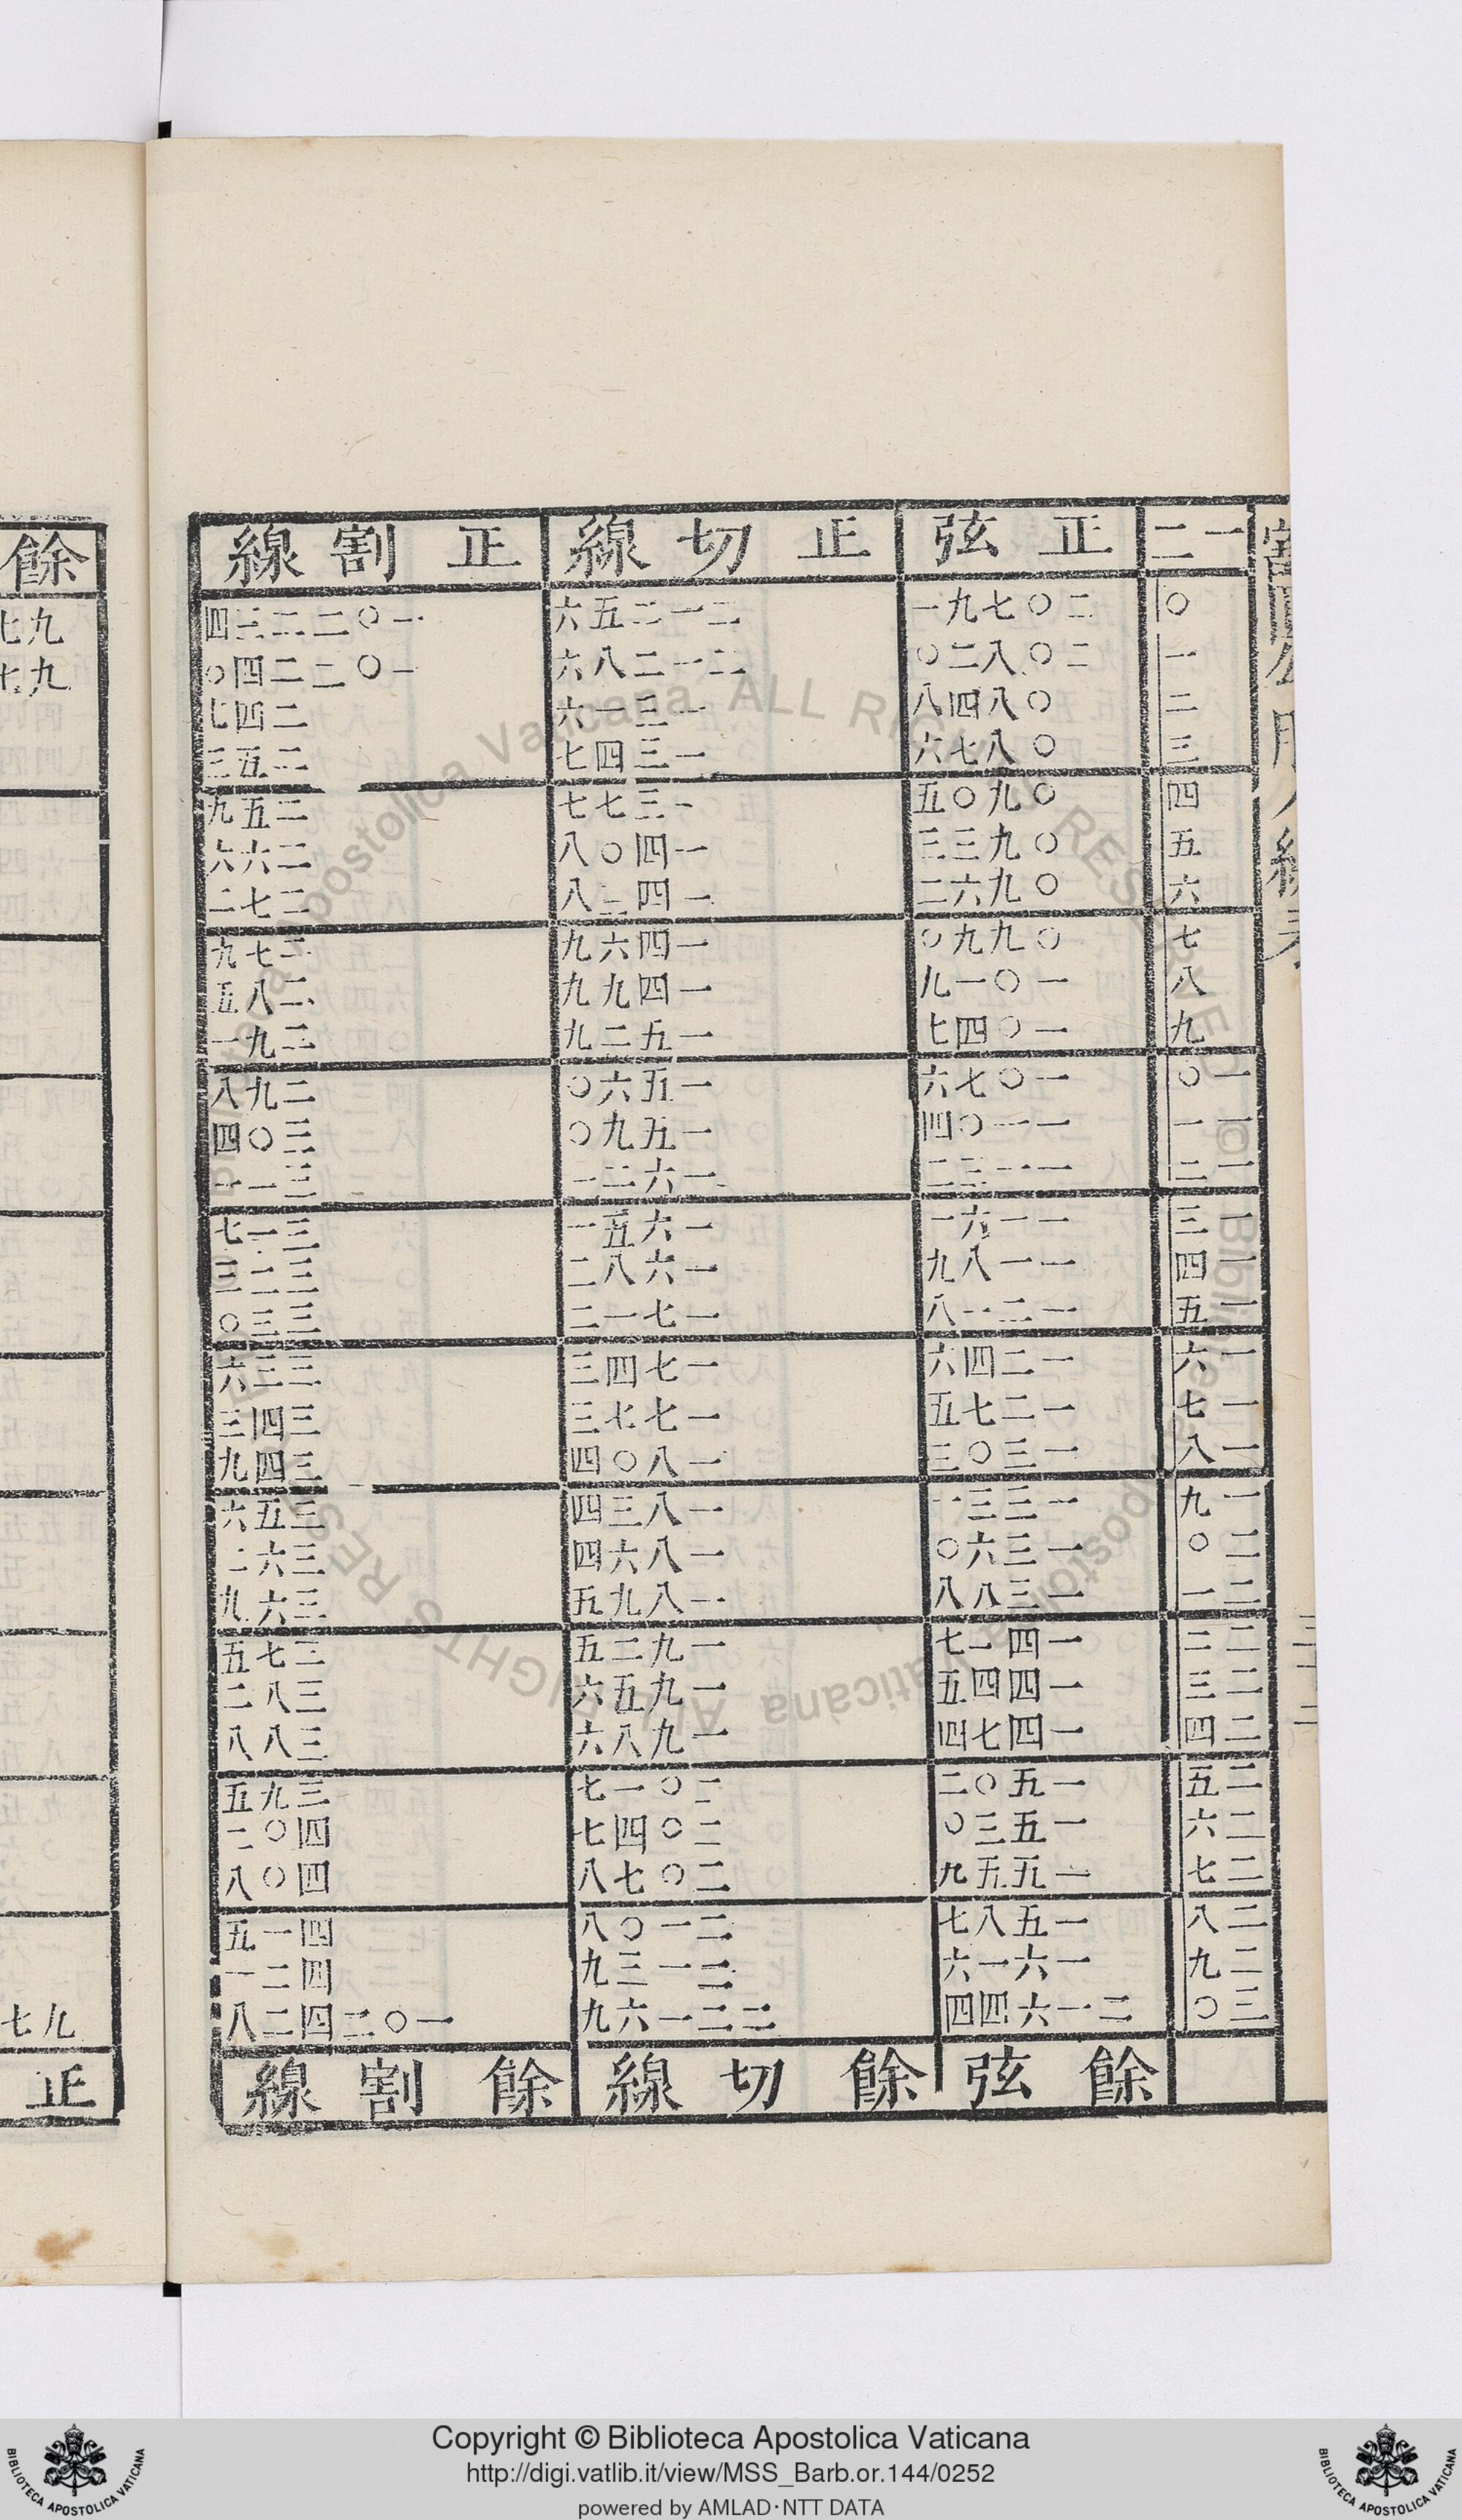 一二 正弦 正切線 正割線
〇 二〇七九一 二一二五六 一〇二二三四
一 二〇八二〇 二一二八六 一〇二二四〇
二 〇八四八 一三一六 二四七
三 〇八七六 一三四七 二五三
四 〇九〇五 一三七七 二五九
五 〇九三三 一四〇八 二六六
六 〇九六二 一四三八 二七二
七 〇九九〇 一四六九 二七九
八 一〇一九 一四九九 二八五
九 一〇四七 一五二九 二九一
一〇 一〇七六 一五六〇 二九八
一一 一一〇四 一五九〇 三〇四
一二 一一三二 一六二一 三一一
一三 一一六一 一六五一 三一七
一四 一一八九 一六八二 三二三
一五 一二一八 一七一二 三三〇
一六 一二四六 一七四三 三三六
一七 一二七五 一七七三 三四三
一八 一三〇三 一八〇四 三四九
一九 一三三一 一八三四 三五六
二〇 一三六〇 一八六四 三六二
二一 一三八八 一八九五 三六九
二二 一四一七 一九二五 三七五
二三 一四四五 一九五六 三八二
二四 一四七四 一九八六 三八八
二五 一五〇二 二〇一七 三九五
二六 一五三〇 二〇四七 四〇二
二七 一五五九 二〇七八 四〇八
二八 一五八七 二一〇八 四一五
二九 一六一六 二一三九 四二一
三〇 二一六四四 二二一六九 一〇二四二八
餘弦 餘切線 餘割線
餘
九七
九七
九七
正
Copyright © Biblioteca Apostolica Vaticana
http://digi.vatlib.it/view/MSS_Barb.or.144/0252
powered by AMLAD·NTT DATA
BIBLIOTECA APOSTOLICA VATICANA
BIBLIOTECA APOSTOLICA VATICANA